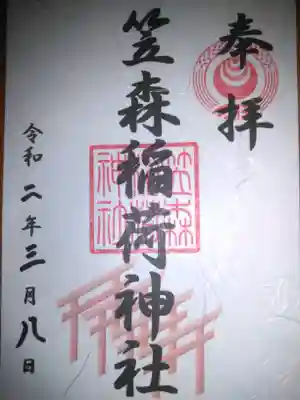 奉拝
笠森稲荷神社
笠森
神社
令和二年三月八日